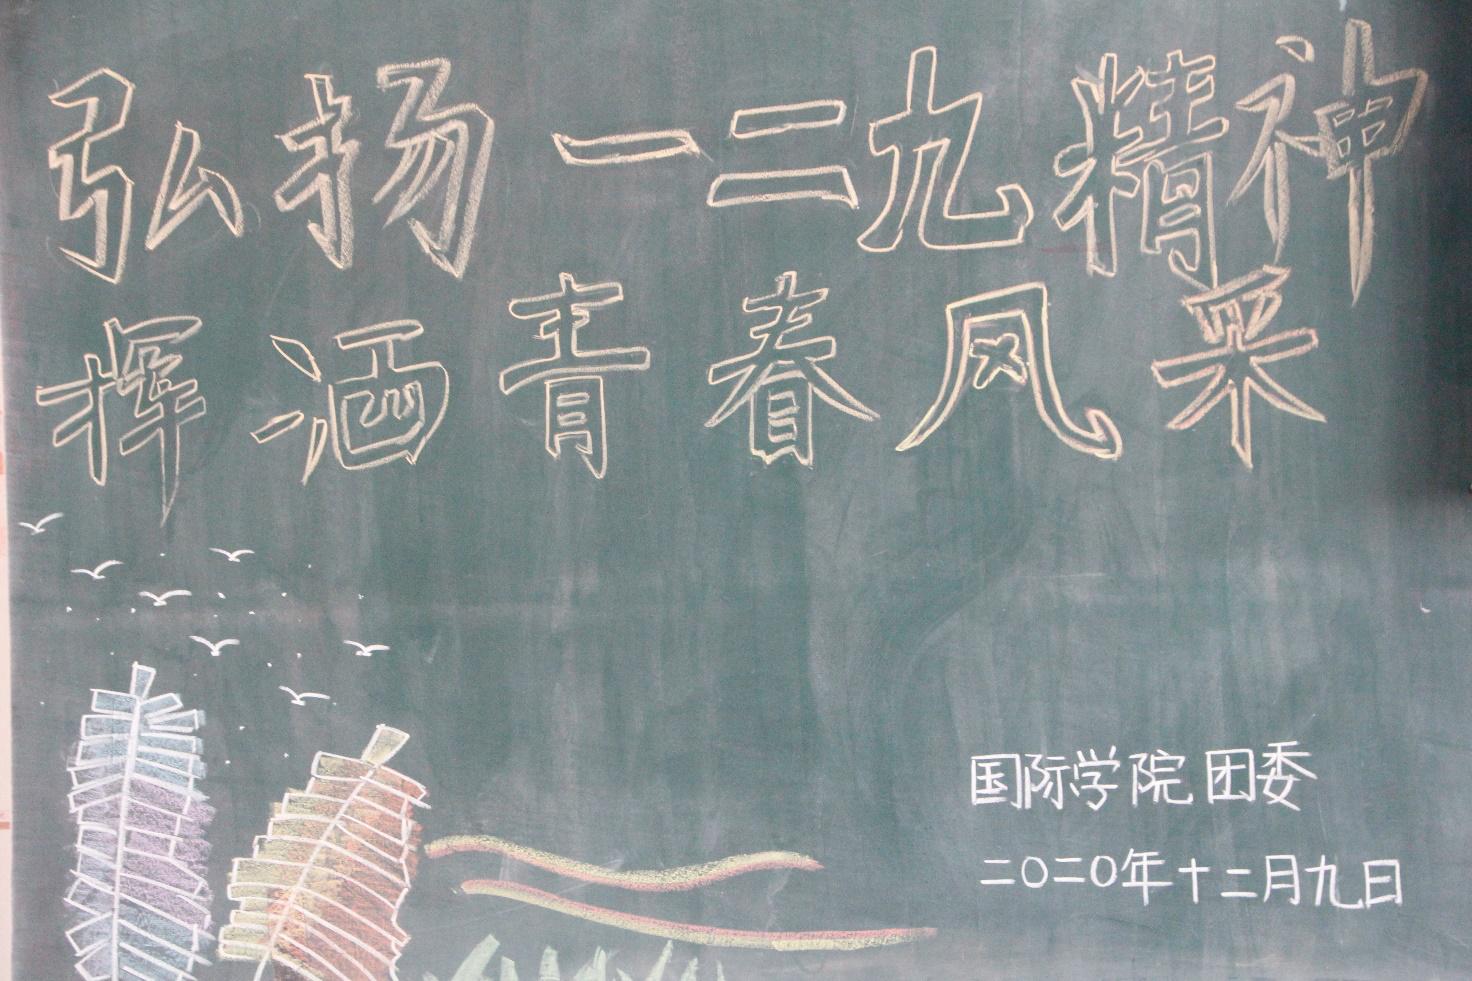 弘扬一二九精神
挥洒青春风采
国际学院团委
二〇二〇年十二月九日